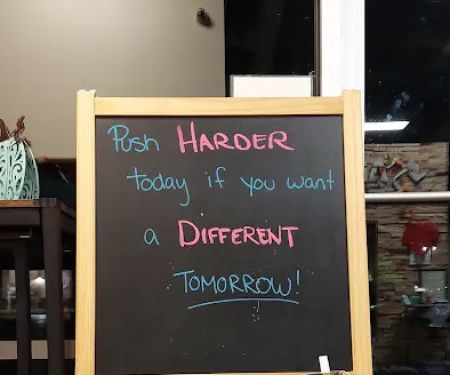 Push HARDER
today if you want
a DIFFERENT
TOMORROW!